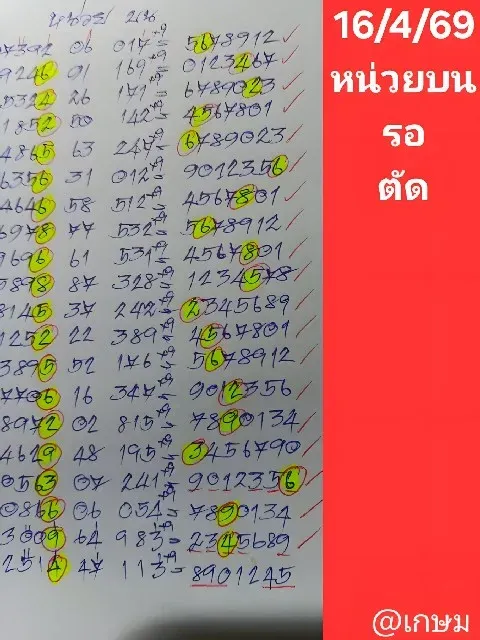 หน่วย บน
07392 06 017+9= 5678912 ✓
9246 91 169+9= 0123467 ✓
5324 26 171+9= 6789023 ✓
1852 50 142+9= 4567801 ✓
4865 63 247+9= 6789023 ✓
6356 31 012+9= 9012356 ✓
4646 58 512+9= 4567801 ✓
6978 77 532+9= 5678912 ✓
9696 61 531+9= 4567801 ✓
5898 87 328+9= 1234578 ✓
8145 37 242+9= 2345689 ✓
1252 22 389+9= 4567801 ✓
3895 52 176+9= 5678912 ✓
7706 16 347+9= 9012356 ✓
8972 02 815+9= 7890134 ✓
4629 48 195+9= 3456790 ✓
0563 07 241+9= 9012356 ✓
0866 06 054+9= 7890134 ✓
3009 64 983+9= 2345689 ✓
2514 47 113+9= 8901245
16/4/69
หน่วยบน
รอ
ตัด
@เกษม